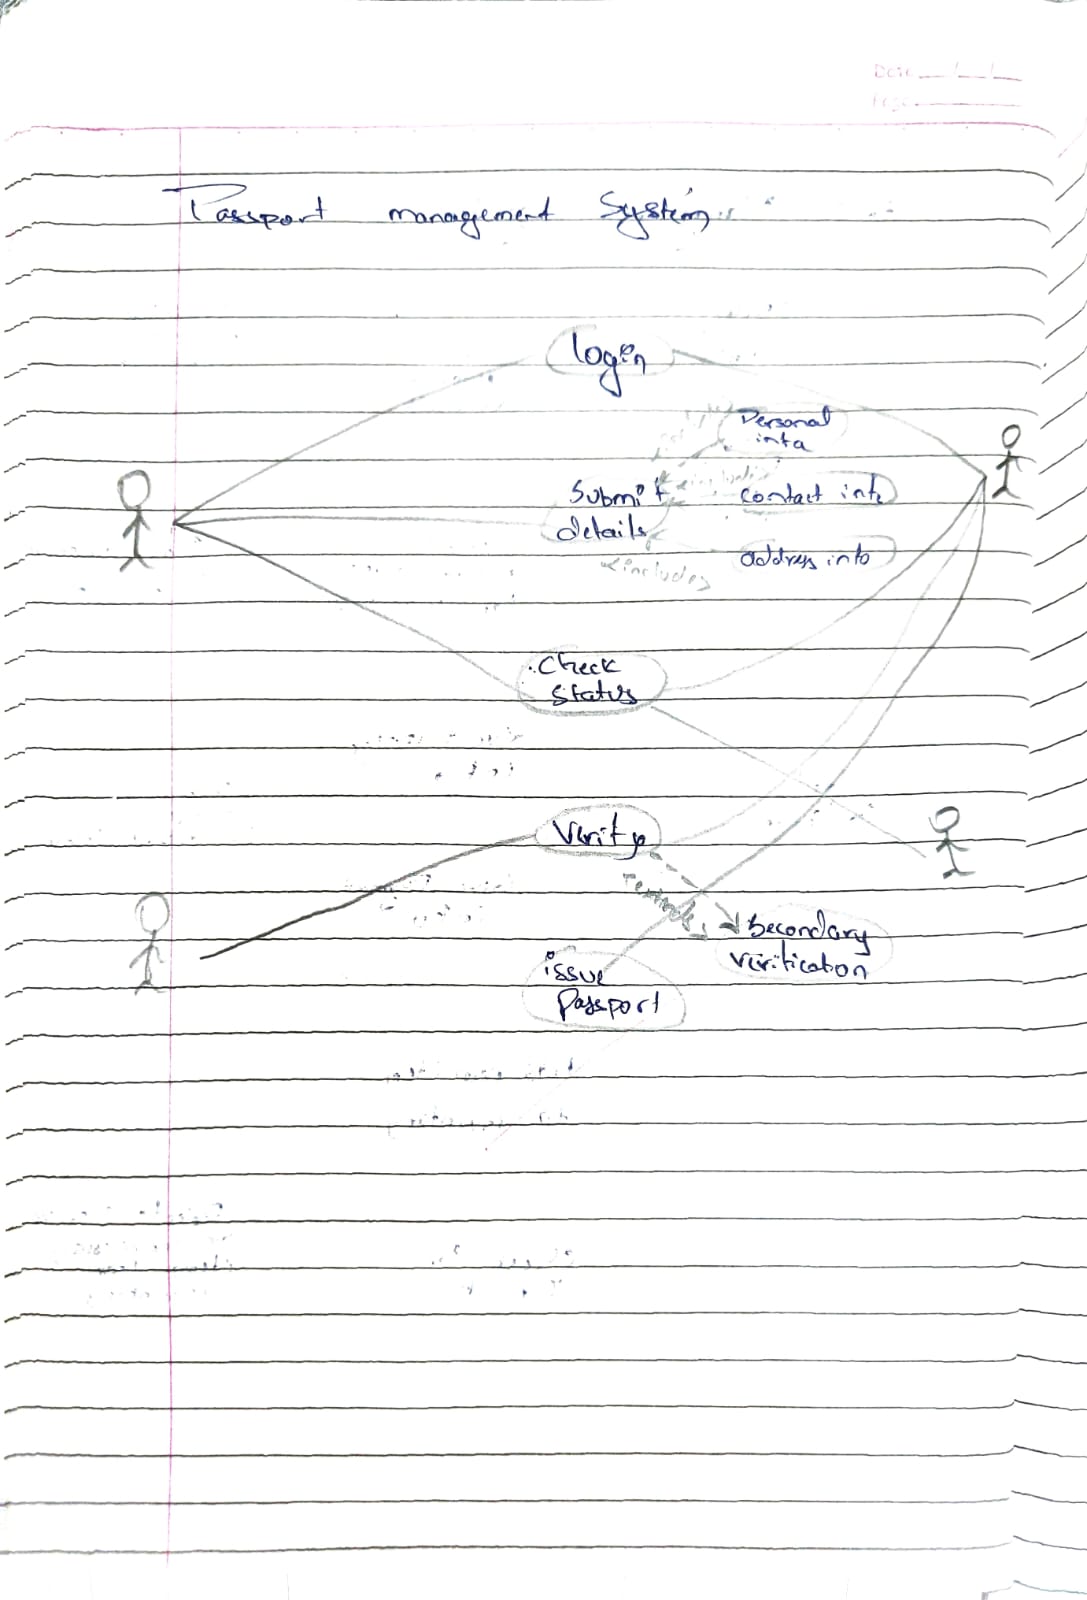 Date
Page
Passport management System
login
Personal
info
Submit
details
contact info
address info
<includes
Check
Status
Verify
Secondary
verification
issue
Passport